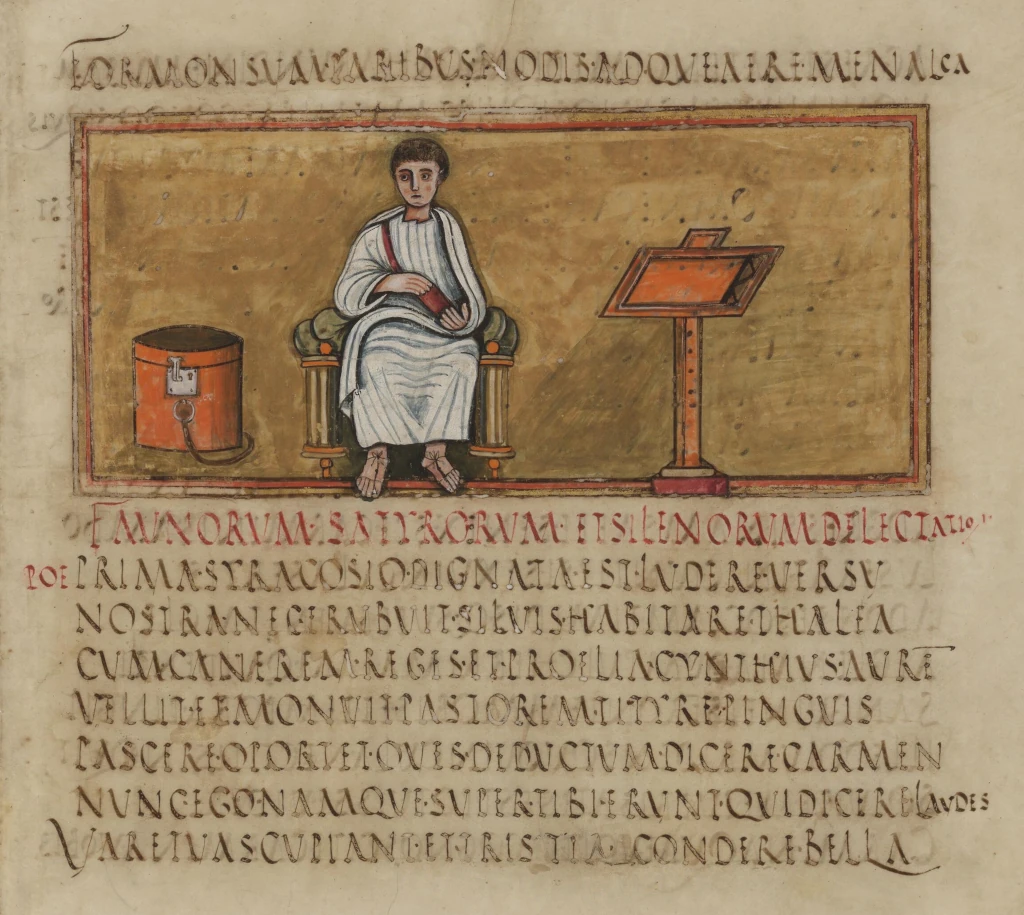 FORMONSVM·PARIBVS·NODIS·ADQVE·AERE·MENALCA
FAVNORVM·SATYRORVM·ET SILENORVM·DELECTATIO
POE PRIMA·SYRACOSIO·DIGNATA·EST·LVDERE·VERSV
NOSTRA·NEC·ERVBVIT·SILVIS·HABITARE·THALEA
CVM·CANEREM·REGES·ET·PROELIA·CYNTHIVS·AVRE
VELLIT·ET·MONVIT·PASTOREM·TITYRE·PINGVIS
PASCERE·OPORTET·OVES·DEDVCTVM·DICERE·CARMEN
NVNC·EGO·NAMQVE·SVPER·TIBI·ERVNT·QVI·DICERE·LAVDES
VARE·TVAS·CVPIANT·ET·TRISTIA·CONDERE·BELLA